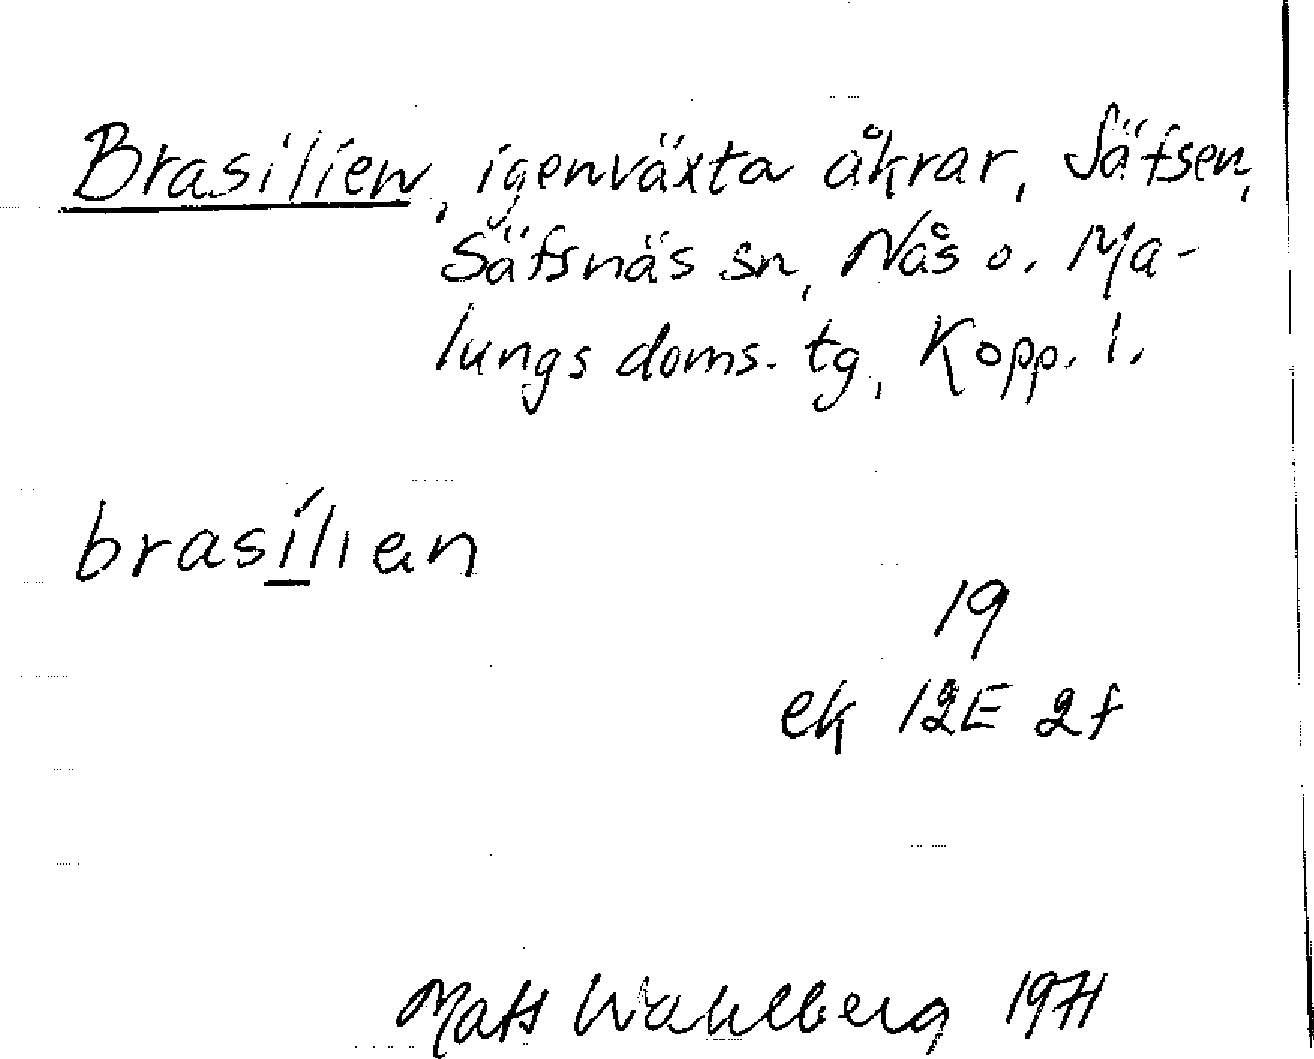 Brasilien, igenväxta åkrar, Säfsen,
Säfsnäs sn, Nås o. Ma-
lungs doms. tg, Kopp. l.
brasílien
19
ek 12E 2f
Mats Wahlberg 1971